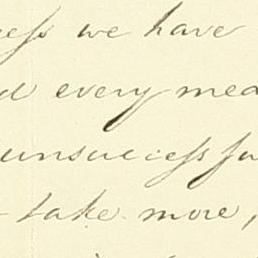 ess we have
d every mea
unsuccessfu
take more,